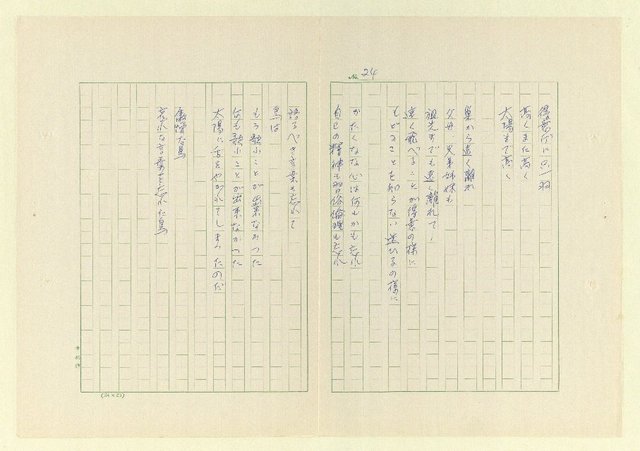 No. 24
得意げに只一羽
高くまた高く
太陽まで高く
巣から遠く離れ
父母 兄弟姉妹も
祖先までも遠く離れて、
遠く飛べることが得意の様に
もどることを知らない
の様に
かたくなな心は何もかも忘れ
自己の精神も
倫理も忘れ
語るべき言葉も忘れて
鳥は
もう歌ふことが出来なかつた
何も歌ふことが出来なかつた
太陽に舌をやかれてしまつたのだ
傲慢な鳥
哀れな言葉を忘れた鳥
(24×25)